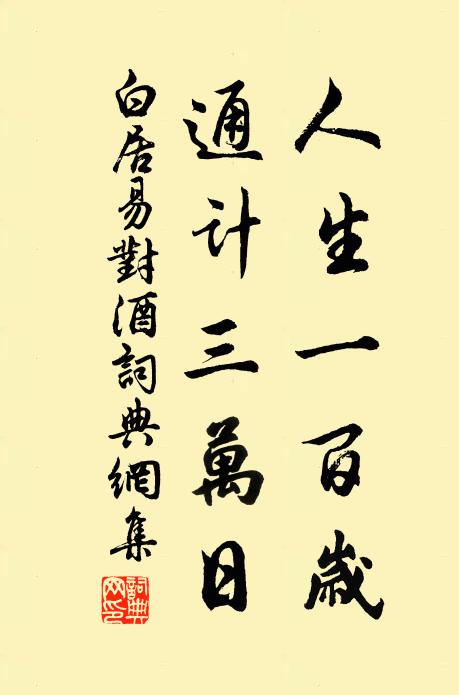 人生一百歲
通計三萬日
白居易對酒詞典網集
詞典
网印